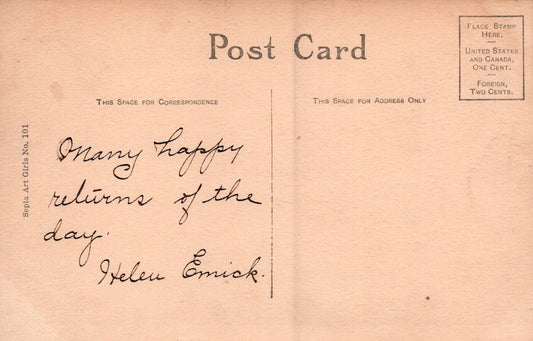 Post Card
PLACE STAMP
HERE.
UNITED STATES
AND CANADA,
ONE CENT.
FOREIGN,
TWO CENTS.
THIS SPACE FOR CORRESPONDENCE
THIS SPACE FOR ADDRESS ONLY
Sepia Art Girls No. 101
Many happy
returns of the
day.
Helen Emick.